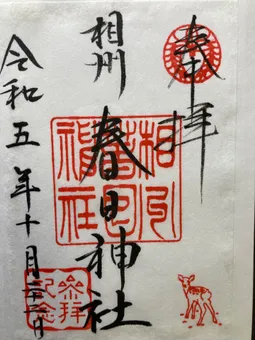 奉拝
相州
春日神社
令和五年十月二十二日
相州
春日神
社
参拝
記念